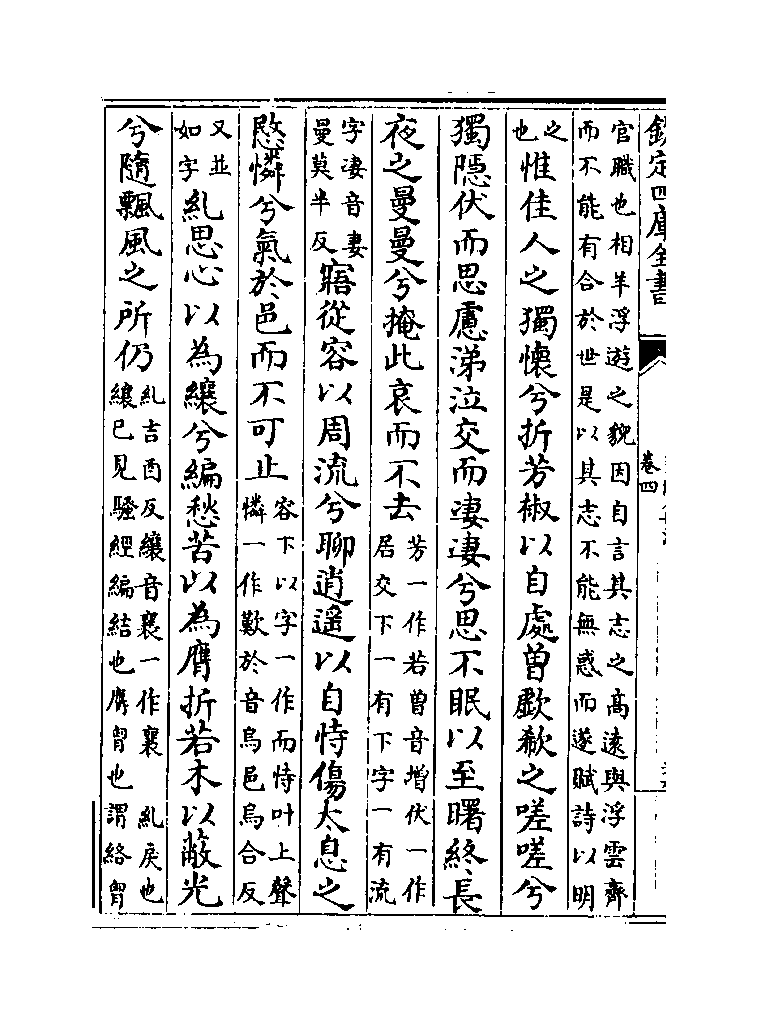 欽定四庫全書
卷四
官職也相羊浮遊之貌因自言其志之高遠與浮雲齊
而不能有合於世是以其志不能無惑而遂賦詩以明
之
也惟佳人之獨懷兮折芳椒以自處曽歔欷之嗟嗟兮
獨隱伏而思慮涕泣交而淒淒兮思不眠以至曙終長
夜之曼曼兮掩此哀而不去芳一作若曽音増伏一作
居交下一有下字一有流
字淒音妻
曼莫半反寤從容以周流兮聊逍遥以自恃傷太息之
愍憐兮氣於邑而不可止容下以字一作而恃叶上聲
憐一作歎於音烏邑烏合反
又並
如字糺思心以為纕兮編愁苦以為膺折若木以蔽光
兮隨飄風之所仍糺吉酉反纕音襄一作襄 糺戾也
纕已見騷經編結也膺胷也 謂絡胷